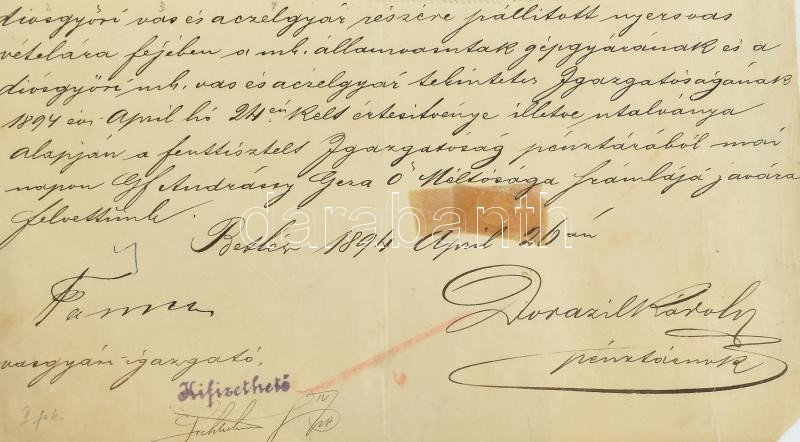 diósgyőri vas és aczélgyár részére szállitott nyersvas
vételára fejében a mk. államvasutak gépgyárának és a
diósgyőri mk. vas és aczélgyár tekintetes Igazgatóságának
1894 évi April hó 24én kelt értesitvénye illetve utalványa
alapján a fenttisztelt Igazgatóság pénztárából mai
napon Gf Andrássy Geza Ő Méltósága számlájá javára
felvettünk.
Betlér 1894 April 26án
Dorazil Károly
vasgyári igazgató.
pénztárnok
Kifizethető
darabanth